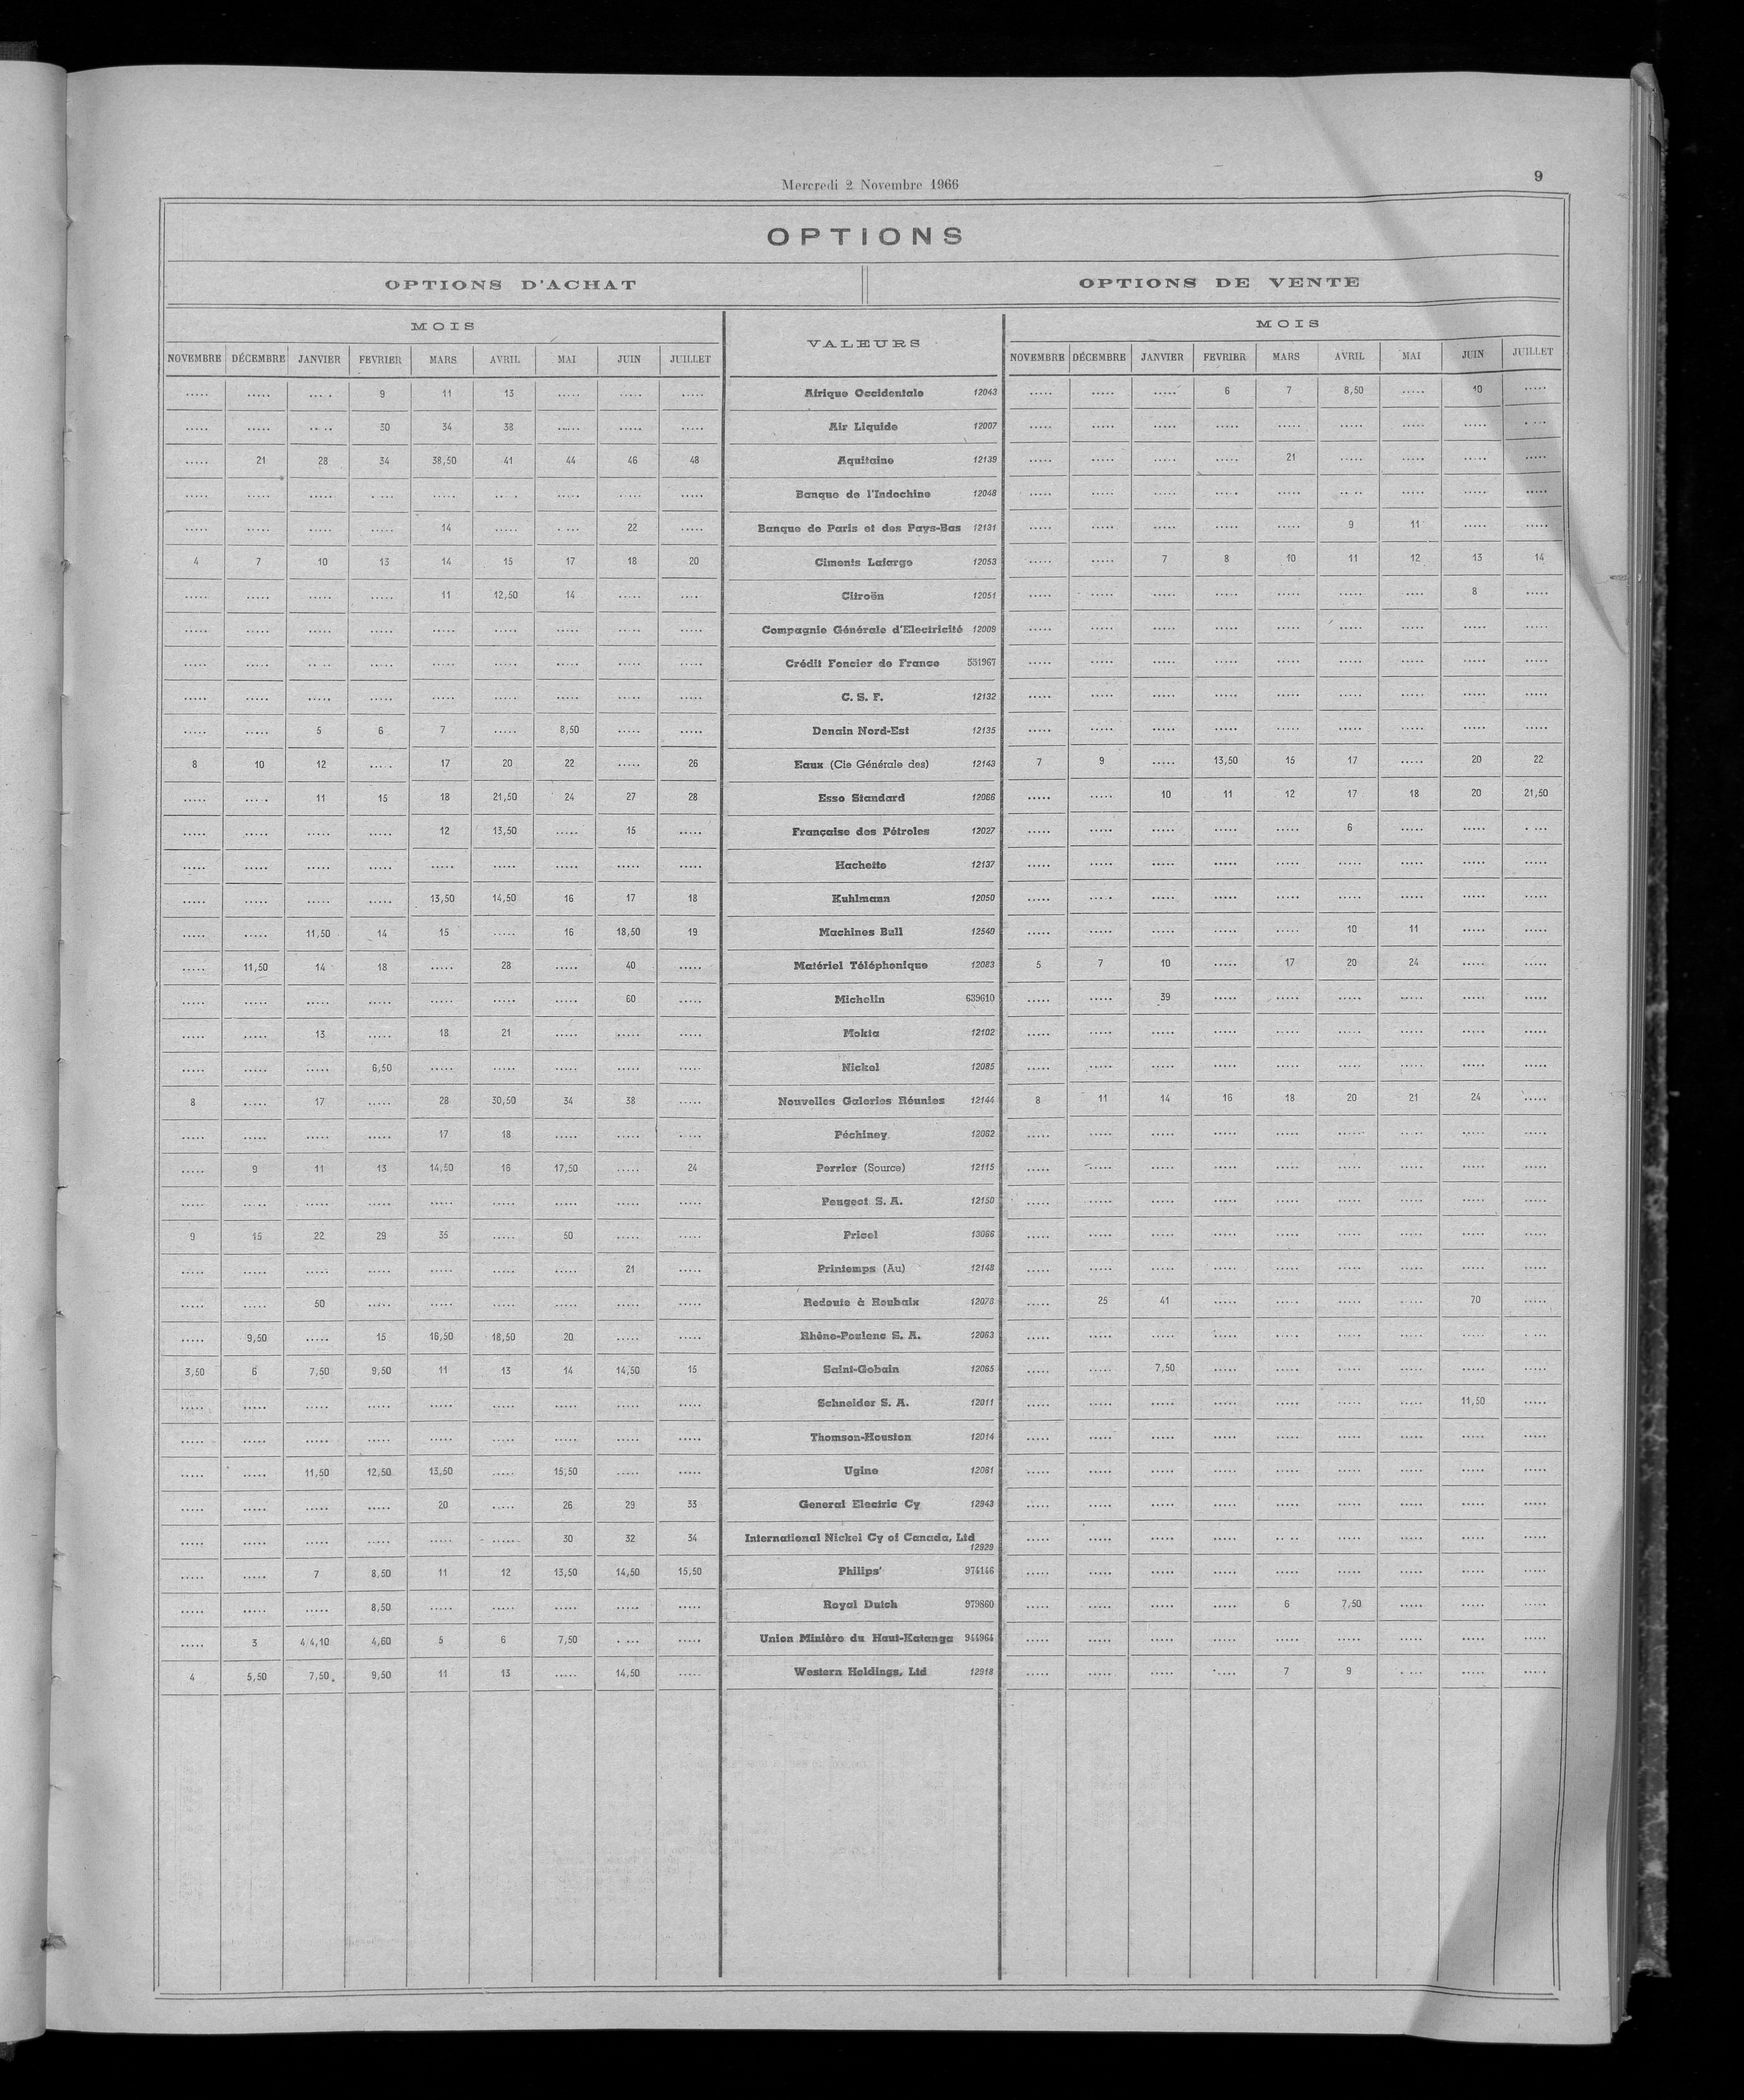 Mercredi 2 Novembre 1966
9
OPTIONS
OPTIONS D'ACHAT OPTIONS DE VENTE
MOIS VALEURS MOIS
NOVEMBRE DÉCEMBRE JANVIER FEVRIER MARS AVRIL MAI JUIN JUILLET NOVEMBRE DÉCEMBRE JANVIER FEVRIER MARS AVRIL MAI JUIN JUILLET
..... ..... ..... 9 11 13 ..... ..... ..... Afrique Occidentale 12043 ..... ..... ..... 6 7 8,50 ..... 10 .....
..... ..... ..... 30 34 38 ..... ..... ..... Air Liquide 12007 ..... ..... ..... ..... ..... ..... ..... ..... .....
..... 21 28 34 38,50 41 44 46 48 Aquitaine 12139 ..... ..... ..... ..... 21 ..... ..... ..... .....
..... ..... ..... ..... ..... ..... ..... ..... ..... Banque de l'Indochine 12048 ..... ..... ..... ..... ..... ..... ..... ..... .....
..... ..... ..... ..... 14 ..... ..... 22 ..... Banque de Paris et des Pays-Bas 12131 ..... ..... ..... ..... ..... 9 11 ..... .....
4 7 10 13 14 15 17 18 20 Ciments Lafarge 12053 ..... ..... 7 8 10 11 12 13 14
..... ..... ..... ..... 11 12,50 14 ..... ..... Citroën 12051 ..... ..... ..... ..... ..... ..... ..... 8 .....
..... ..... ..... ..... ..... ..... ..... ..... ..... Compagnie Générale d'Electricité 12009 ..... ..... ..... ..... ..... ..... ..... ..... .....
..... ..... ..... ..... ..... ..... ..... ..... ..... Crédit Foncier de France 531967 ..... ..... ..... ..... ..... ..... ..... ..... .....
..... ..... ..... ..... ..... ..... ..... ..... ..... C. S. F. 12132 ..... ..... ..... ..... ..... ..... ..... ..... .....
..... ..... 5 6 7 ..... 8,50 ..... ..... Denain Nord-Est 12135 ..... ..... ..... ..... ..... ..... ..... ..... .....
8 10 12 ..... 17 20 22 ..... 26 Eaux (Cie Générale des) 12143 7 9 ..... 13,50 15 17 ..... 20 22
..... ..... 11 15 18 21,50 24 27 28 Esso Standard 12066 ..... ..... 10 11 12 17 18 20 21,50
..... ..... ..... ..... 12 13,50 ..... 15 ..... Française des Pétroles 12027 ..... ..... ..... ..... ..... 6 ..... ..... .....
..... ..... ..... ..... ..... ..... ..... ..... ..... Hachette 12137 ..... ..... ..... ..... ..... ..... ..... ..... .....
..... ..... ..... ..... 13,50 14,50 16 17 18 Kuhlmann 12050 ..... ..... ..... ..... ..... ..... ..... ..... .....
..... ..... 11,50 14 15 ..... 16 18,50 19 Machines Bull 12540 ..... ..... ..... ..... ..... 10 11 ..... .....
..... 11,50 14 18 ..... 28 ..... 40 ..... Matériel Téléphonique 12083 5 7 10 ..... 17 20 24 ..... .....
..... ..... ..... ..... ..... ..... ..... 60 ..... Michelin 639610 ..... ..... 39 ..... ..... ..... ..... ..... .....
..... ..... 13 ..... 18 21 ..... ..... ..... Mokta 12102 ..... ..... ..... ..... ..... ..... ..... ..... .....
..... ..... ..... 6,50 ..... ..... ..... ..... ..... Nickel 12085 ..... ..... ..... ..... ..... ..... ..... ..... .....
8 ..... 17 ..... 28 30,50 34 38 ..... Nouvelles Galeries Réunies 12144 8 11 14 16 18 20 21 24 .....
..... ..... ..... ..... 17 18 ..... ..... ..... Péchiney 12062 ..... ..... ..... ..... ..... ..... ..... ..... .....
..... 9 11 13 14,50 16 17,50 ..... 24 Perrier (Source) 12115 ..... ..... ..... ..... ..... ..... ..... ..... .....
..... ..... ..... ..... ..... ..... ..... ..... ..... Peugeot S. A. 12150 ..... ..... ..... ..... ..... ..... ..... ..... .....
9 15 22 29 35 ..... 50 ..... ..... Pricel 13066 ..... ..... ..... ..... ..... ..... ..... ..... .....
..... ..... ..... ..... ..... ..... ..... 21 ..... Printemps (Au) 12148 ..... ..... ..... ..... ..... ..... ..... ..... .....
..... ..... 50 ..... ..... ..... ..... ..... ..... Redoute à Roubaix 12078 ..... 25 41 ..... ..... ..... ..... 70 .....
..... 9,50 ..... 15 16,50 18,50 20 ..... ..... Rhône-Poulenc S. A. 12063 ..... ..... ..... ..... ..... ..... ..... ..... .....
3,50 6 7,50 9,50 11 13 14 14,50 15 Saint-Gobain 12065 ..... ..... 7,50 ..... ..... ..... ..... ..... .....
..... ..... ..... ..... ..... ..... ..... ..... ..... Schneider S. A. 12011 ..... ..... ..... ..... ..... ..... ..... 11,50 .....
..... ..... ..... ..... ..... ..... ..... ..... ..... Thomson-Houston 12014 ..... ..... ..... ..... ..... ..... ..... ..... .....
..... ..... 11,50 12,50 13,50 ..... 15,50 ..... ..... Ugine 12081 ..... ..... ..... ..... ..... ..... ..... ..... .....
..... ..... ..... ..... 20 ..... 26 29 33 General Electric Cy 12943 ..... ..... ..... ..... ..... ..... ..... ..... .....
..... ..... ..... ..... ..... ..... 30 32 34 International Nickel Cy of Canada, Ltd ..... ..... ..... ..... ..... ..... ..... ..... .....
12929
..... ..... 7 8,50 11 12 13,50 14,50 15,50 Philips' 974146 ..... ..... ..... ..... ..... ..... ..... ..... .....
..... ..... ..... 8,50 ..... ..... ..... ..... ..... Royal Dutch 979860 ..... ..... ..... ..... 6 7,50 ..... ..... .....
..... 3 4 4,10 4,60 5 6 7,50 ..... ..... Union Minière du Haut-Katanga 944964 ..... ..... ..... ..... ..... ..... ..... ..... .....
4 5,50 7,50 9,50 11 13 ..... 14,50 ..... Western Holdings, Ltd 12918 ..... ..... ..... ..... 7 9 ..... ..... .....